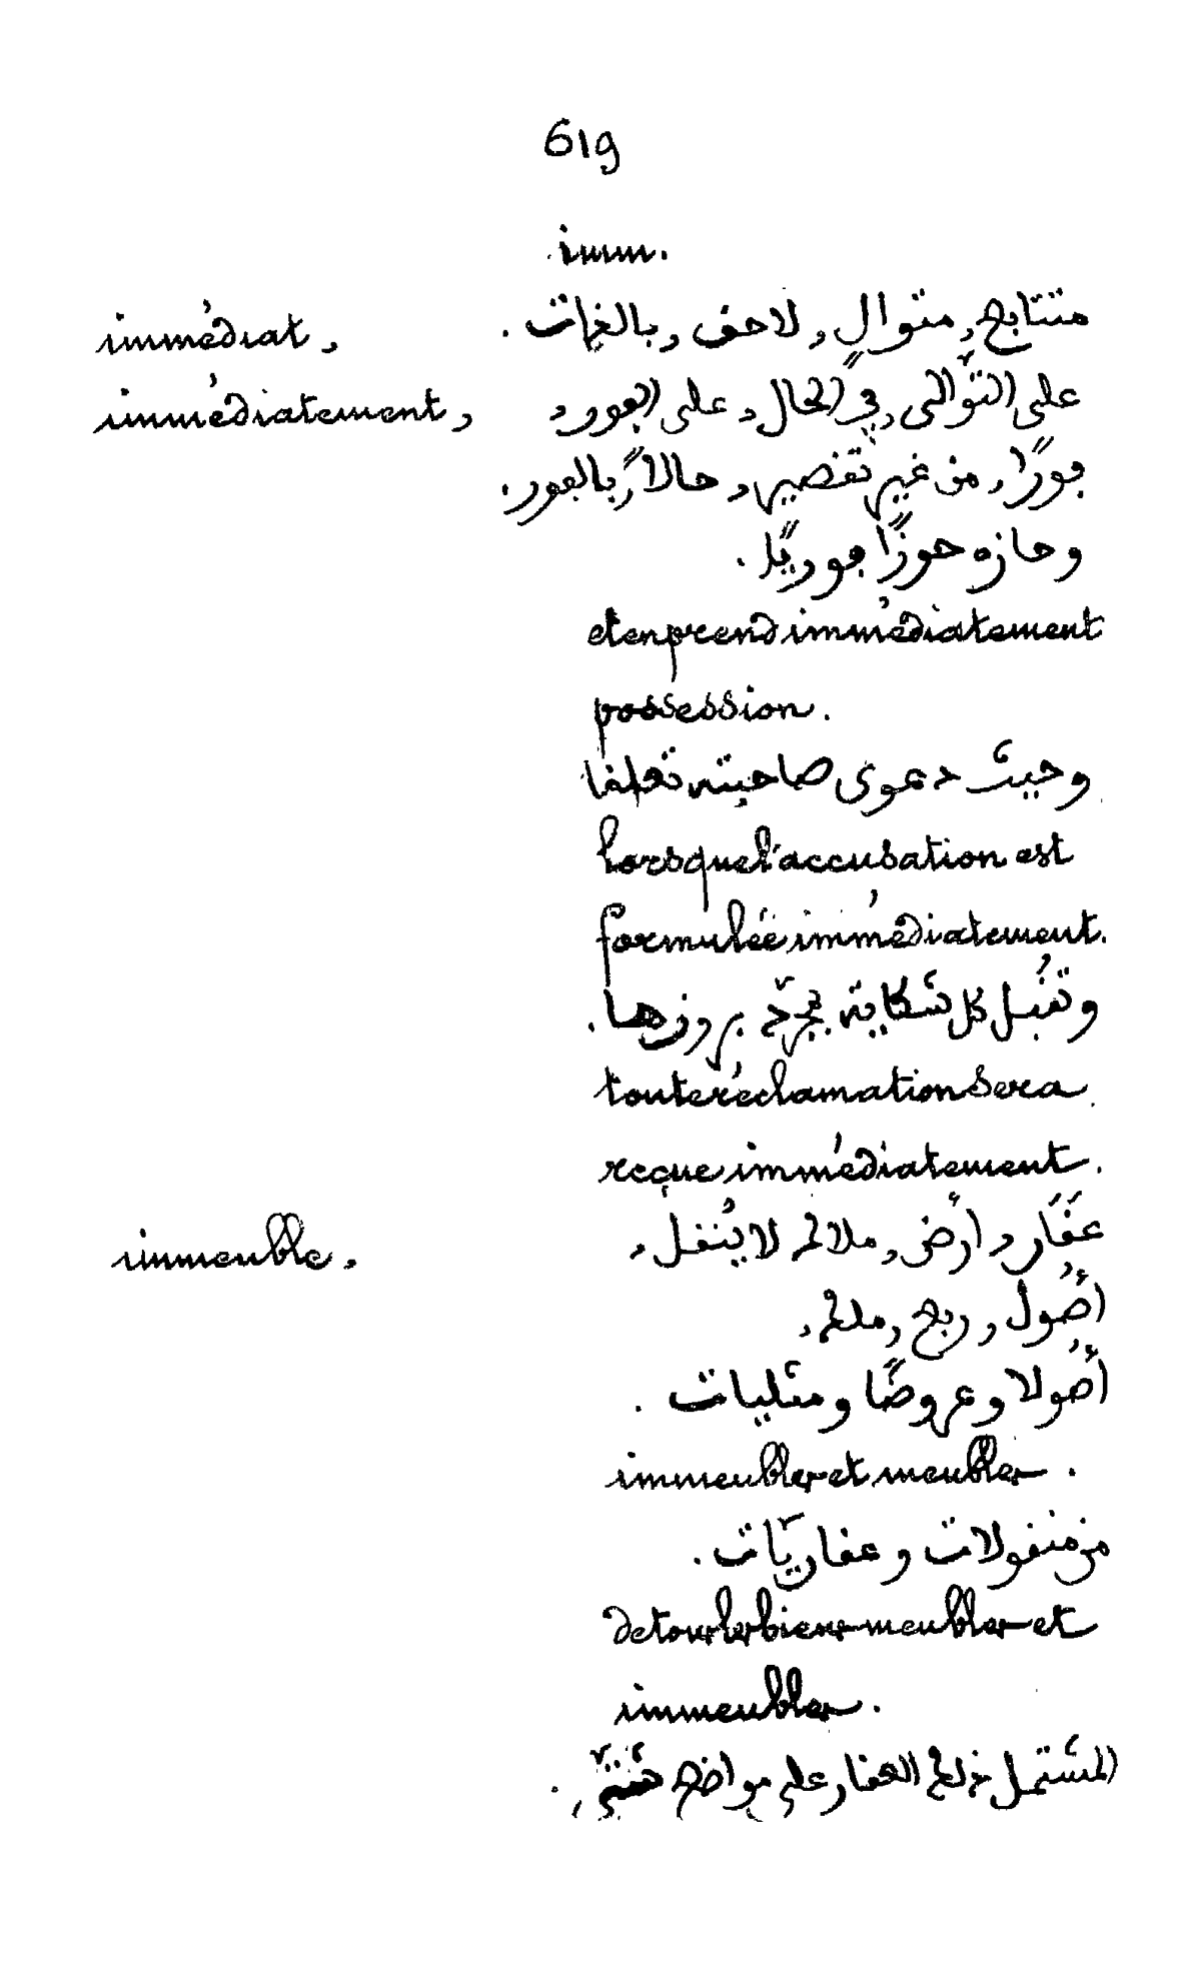 619
imm.
immédiat, متتابع, متوالٍ, لاحق, بالذات.
immédiatement, على التّوالى, في الحال, على الفور,
فورًا, من غير تقصير, حالاً, بالفور.
وحازه حوزًا فوريًّا.
et en prend immédiatement
possession.
وحيث دعوى صاحبته
lorsque l'accusation est
formulée immédiatement.
وتقبل كل شكاية بمجرّد بروزها.
toute réclamation sera
reçue immédiatement.
immeuble, عَقَار, ارض, ملاك لا يُنقل,
أصُول, ربع, ملك,
أصُولا وعروضًا ومثليات.
immeubles et meubles.
من منقولات وعقاريّات.
de tous les biens meubles et
immeubles.
المشتمل ذلك العقار على مواضع شتّى.